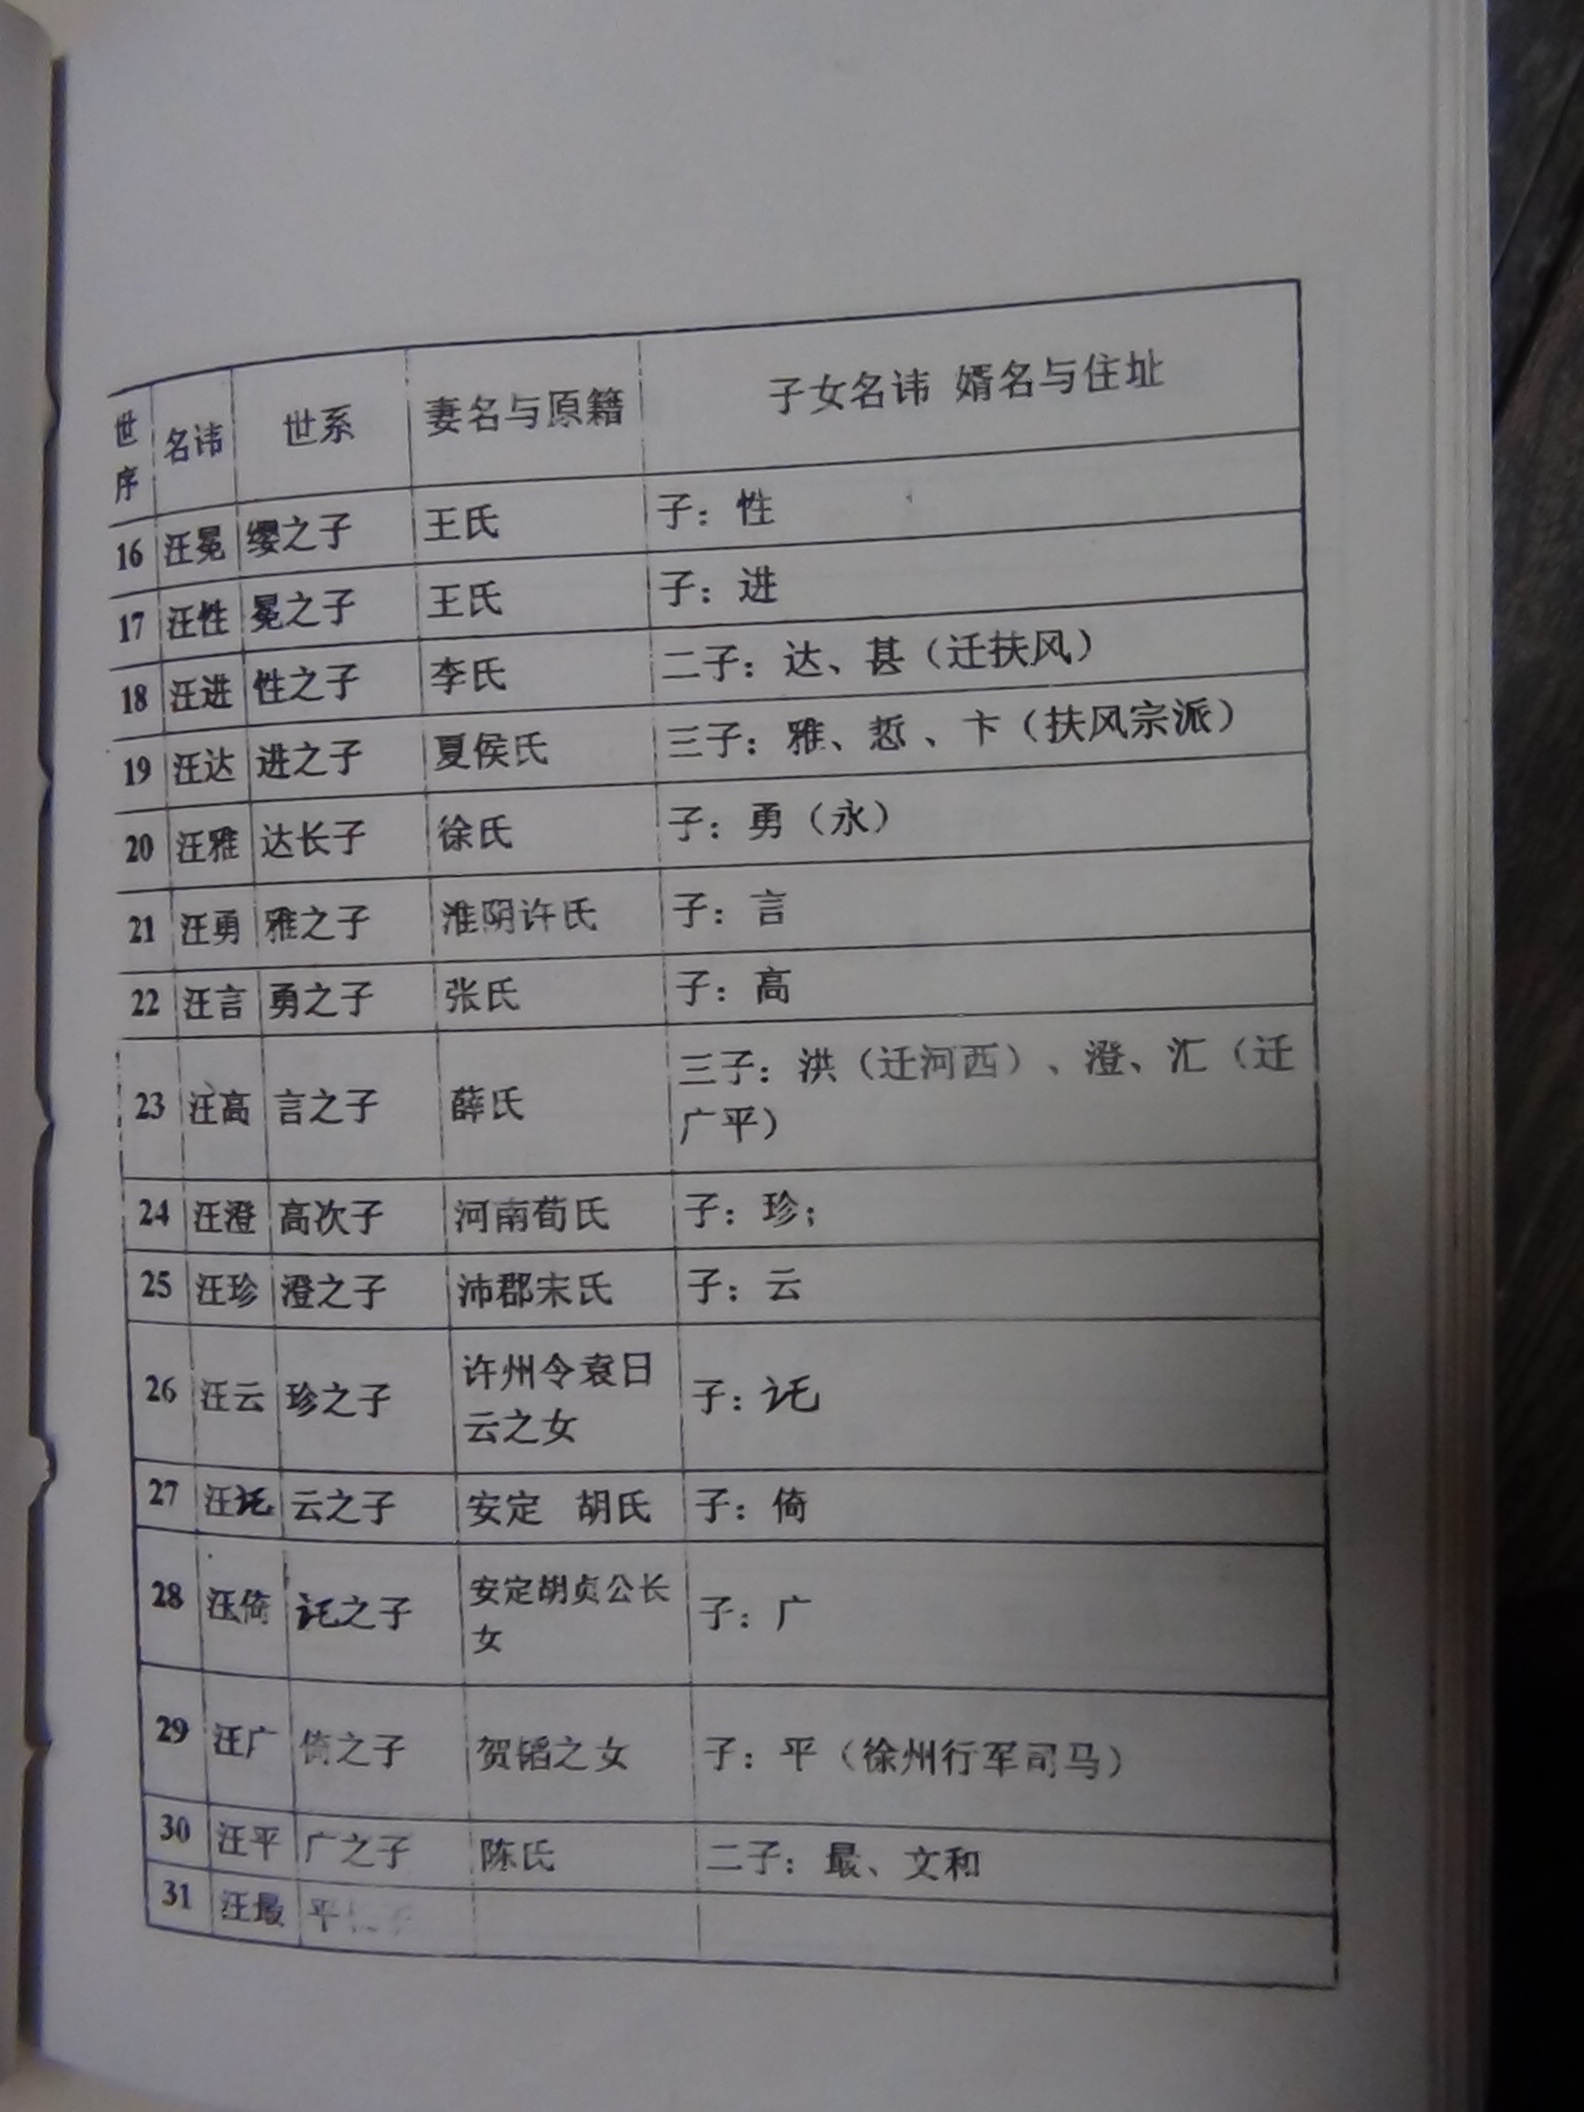 世序 名讳 世系 妻名与原籍 子女名讳 婿名与住址
16 汪冕 缨之子 王氏 子：性
17 汪性 冕之子 王氏 子：进
18 汪进 性之子 李氏 二子：达、甚（迁扶风）
19 汪达 进之子 夏侯氏 三子：雅、悊、卞（扶风宗派）
20 汪雅 达长子 徐氏 子：勇（永）
21 汪勇 雅之子 淮阴许氏 子：言
22 汪言 勇之子 张氏 子：高
23 汪高 言之子 薛氏 三子：洪（迁河西）、澄、汇（迁
广平）
24 汪澄 高次子 河南荀氏 子：珍；
25 汪珍 澄之子 沛郡宋氏 子：云
26 汪云 珍之子 许州令袁日 子：讬
云之女
27 汪讬 云之子 安定 胡氏 子：倚
28 汪倚 讬之子 安定胡贞公长 子：广
女
29 汪广 倚之子 贺韬之女 子：平（徐州行军司马）
30 汪平 广之子 陈氏 二子：最、文和
31 汪最 平